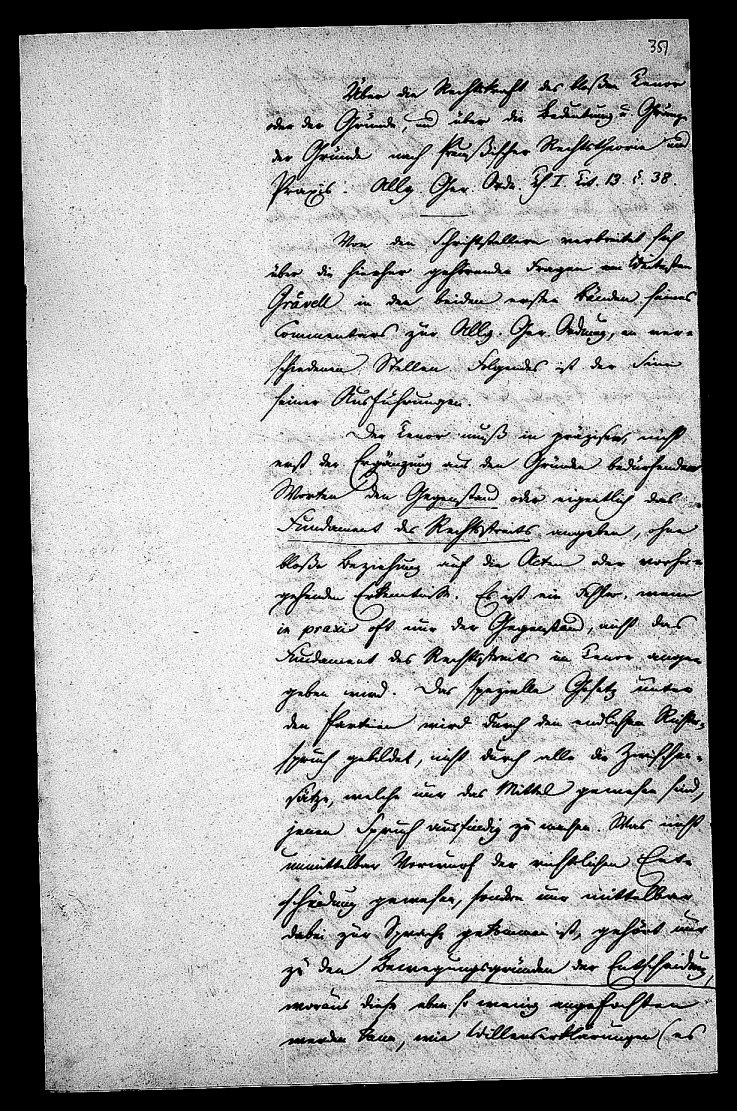 35
Über die Rechtskraft des bloßen Tenor
oder der Gründe, und über die Bedeutung u
der Gründe nach Preußischer Rechtstheorie und
Praxis. Allg. Ger. Ordn. Th I. Tit. 13. §. 38.
Von den Schriftstellern verbreitet sich
über die hierher gehörenden Fragen am Weitesten
Grävell in den beiden ersten Bänden seines
Commentars zur Allg. Ger. Ordnung, an ver-
schiedenen Stellen. Folgendes ist der Sinn
seiner Ausführungen.
Der Tenor muß in präzisen, nicht
erst der Ergänzung aus den Gründen bedürfenden
Worten den Gegenstand oder eigentlich das
Fundament des Rechtsstreits angeben, ohne
bloße Beziehung auf die Acten oder vorher-
gehenden Erkenntniß. Es ist ein Fehler, wenn
in praxi oft nur der Gegenstand, nicht das
Fundament des Rechtsstreits im Tenor ange-
geben wird. Das spezielle Gesetz unter
den Partien wird durch den endlichen Richter-
spruch gebildet, nicht durch alle die Zwischen-
sätze, welche nur das Mittel gewesen sind,
jenen Spruch ausfindig zu machen. Was nicht
unmittelbar Vorwurf der richtlichen Ent-
scheidung gewesen, sondern nur mittelbar
dabei zur Sprache gekommen ist, gehört nur
zu den Bewegungsgründen der Entscheidung,
woraus diese eben so wenig angefochten
werden kann, wie Willenserklärungen (es